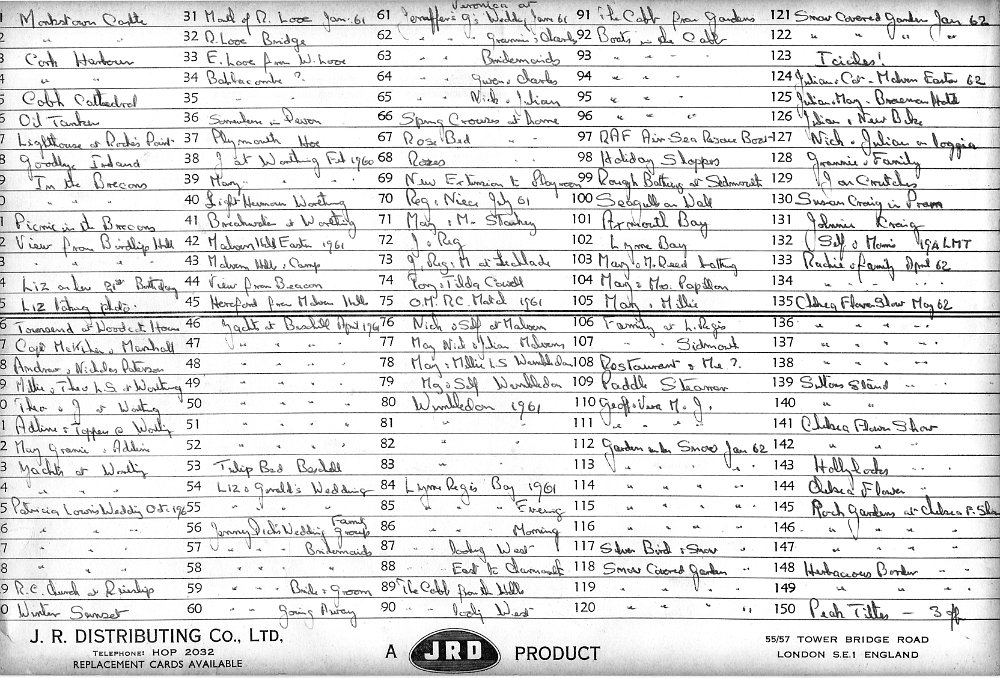 1 Monkstown Castle
2 " "
3 Cork Harbour
4 " "
5 Cobh Cathedral
6 Oil Tanker
7 Lighthouse at Roches Point
8 Goodbye Ireland
9 In the Brecons
0 " "
1 Picnic in the Brecons
2 View from Birdlip Hill
3 " " " "
4 Liz on her 21st Birthday
5 Liz taking photo.
6 Townsend at Woodcote House
7 Capt & Marshall
8 Andrew & Nicholas Paterson
9 Millie, Theo & L.S. at Worthing
0 Theo & J at Worthing
1 Adeline & Topper @ Worthing
2 May Grannie & Adeline
3 Yachts at Worthing
4 " " "
5 Patricia Lewis Wedding Oct. 1960
6 " "
7 " "
8 " "
9 R.C. Church at Ruislip
0 Winter Sunset
31 of R. Looe Jan. 61
32 R. Looe Bridge
33 E. Looe from W. Looe
34 Babbacombe ?
35 " "
36 Somewhere in Devon
37 Plymouth Hoe
38 J at Worthing Feb 1960
39 Mary " "
40 Worthing
41 Breakwater at Worthing
42 Malvern Hills Easter 1961
43 Malvern Hills & Camp
44 View from Beacon
45 Hereford from Malvern Hills
46 Yachts at Bexhill April 1961
47 " " "
48 " " "
49 " " "
50 " " "
51 " " "
52 " " "
53 Tulip Bed Bexhill
54 Liz & Gerald's Wedding
55 " " "
56 Jenny Dick's Wedding Family Group
57 " " Bridesmaids
58 " " "
59 " " Bride & Groom
60 " " going Away
61 Veronica at G's Wedding Jan 61
62 " " Grannie & Charles
63 " " Bridesmaids
64 " " Gwen & Charles
65 " " Nick & Julian
66 Spring Crocuses at home
67 Rose Bed "
68 Roses "
69 New Extension to Playroom
70 Reg & Niece July 61
71 Mary & M.
72 J & Reg
73 J, Reg, M at Lechlade
74 Tony & Tilda Cowell
75 O.M's R.C. Match 1961
76 Nick & Self at Malvern
77 May Nick & Julian Malverns
78 May & Millie L.S Wimbledon
79 May & Self Wimbledon
80 Wimbledon 1961
81 " "
82 " "
83 " "
84 Lyme Regis Bay 1961
85 " " Evening
86 " " Morning
87 " " looking West
88 East to Charmouth
89 The Cobb from the Hills
90 " " looking West
91 The Cobb from Gardens
92 Boats in the Cobb
93 " " "
94 " " "
95 " " "
96 " " "
97 RAF Air-Sea Rescue Boat
98 Holiday Shoppers
99 Rough Bathing at Sidmouth
100 Seagull on Wall
101 Axmouth Bay
102 Lyme Bay
103 Mary & M. Reed bathing
104 Mary & Mrs. Papillon
105 Mary & Millie
106 Family at L. Regis
107 " " Sidmouth
108 Restaurant & Me ?.
109 Paddle Steamer
110 Geoff & Vera M. J.
111 " " "
112 Garden under Snow Jan 62
113 " " " "
114 " " " "
115 " " " "
116 " " " "
117 Silver Birch & Snow "
118 Snow Covered Garden "
119 " " "
120 " " "
121 Snow Covered Garden Jan 62
122 " " "
123 Icicles!
124 Julian & Car - Malvern Easter 62
125 Julian & May - Braemar Hotel
126 Julian & New Bike
127 Nick & Julian on loggia
128 Grannie & Family
129 J on Crutches
130 Susan Craig in Pram
131 Johnnie Craig
132 (Self & Morris 15A LMT
133 Rachie & family April 62
134 " " "
135 Chelsea Flower Show May 62
136 " " "
137 " " "
138 " " "
139 Suttons Stand " "
140 " "
141 Chelsea Flower Show
142 " " "
143 Hollyhocks
144 Chelsea Flower "
145 Rock Gardens at Chelsea F. Show
146 " " " "
147 " " " "
148 Herbaceous Border "
149 " " "
150 Peak Titles - 3 of
J. R. DISTRIBUTING Co., LTD,
TELEPHONE: HOP 2032
REPLACEMENT CARDS AVAILABLE
A JRD PRODUCT
55/57 TOWER BRIDGE ROAD
LONDON S.E.1 ENGLAND